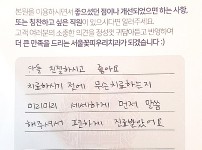 본원을 이용하시면서 좋으셨던 점이나 개선되었으면 하는 사항,
또는 칭찬하고 싶은 직원이 있으시다면 알려주세요.
고객 여러분의 소중한 의견을 항상 귀담아듣고 반영하여
더 큰 만족을 드리는 서울꽃피우리치과가 되겠습니다 :)
다들 친절하시고 좋아요
치료하시기 전에 무슨치료하는지
미리미리 세세하게 먼저 말씀
해주셔서 편하게 진료받았어요